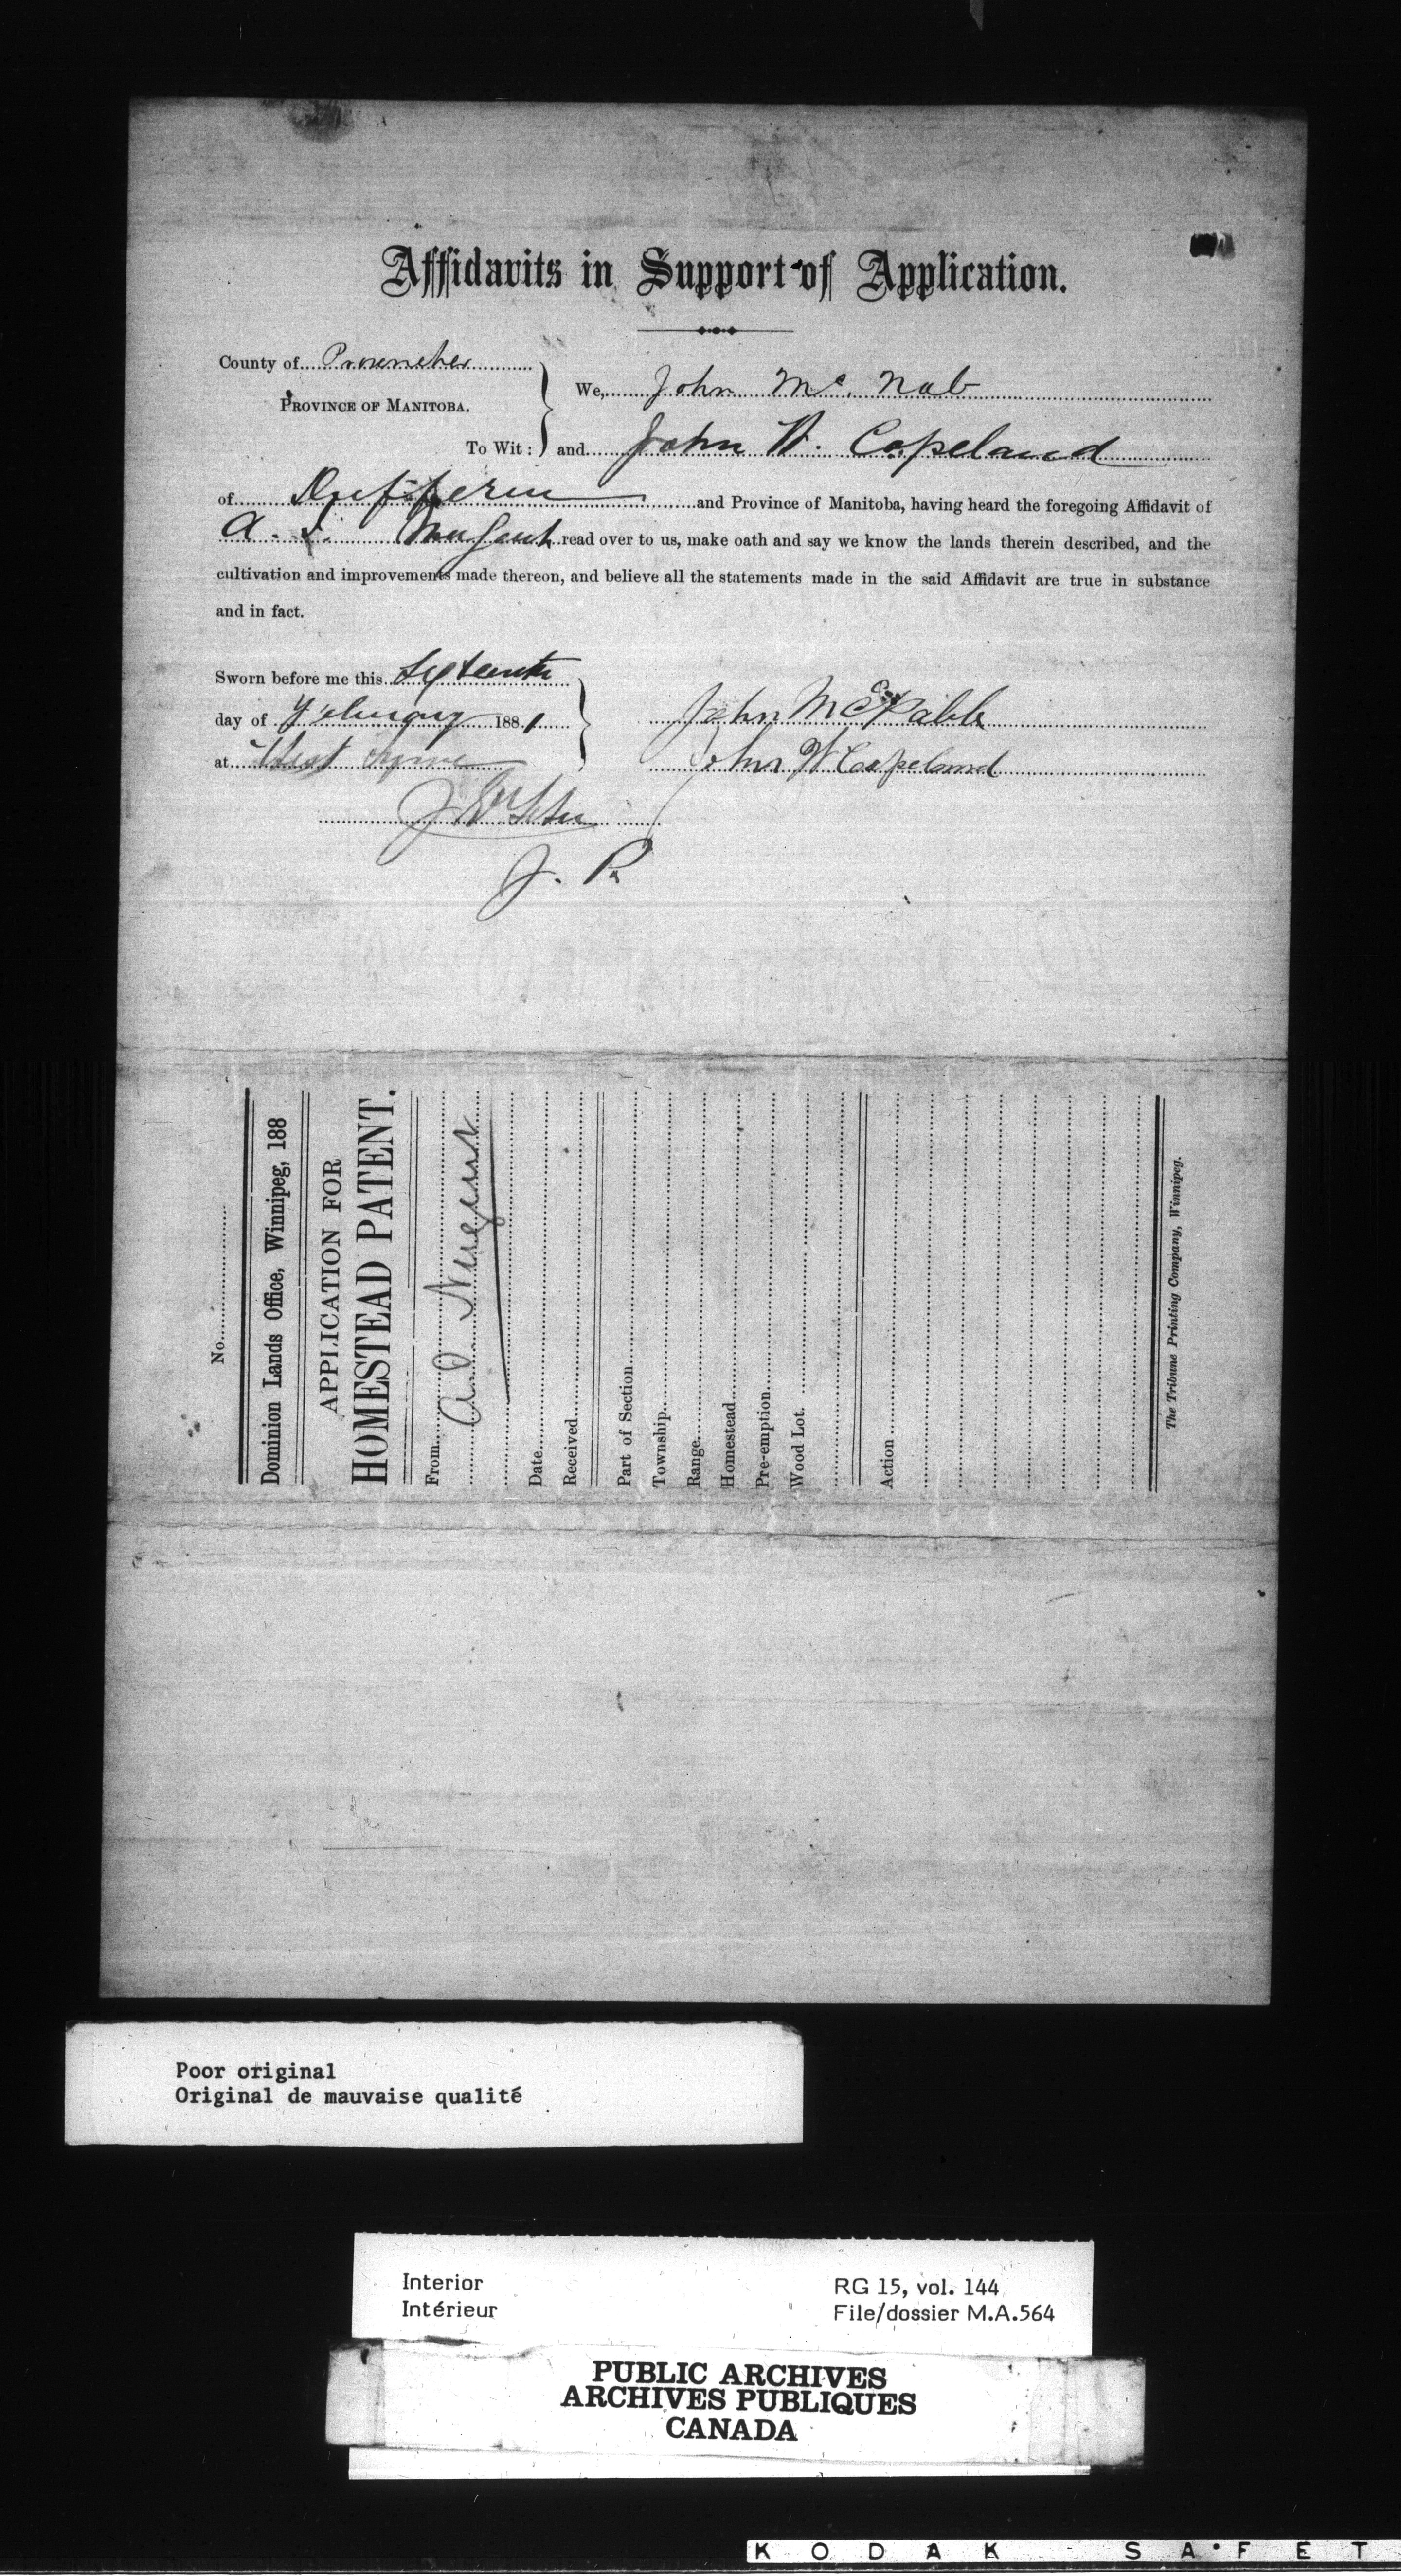 Affidavits in Support of Application.
County of Provencher
PROVINCE OF MANITOBA.
To Wit:
We, John Mc. Nab
and John W. Copeland
of Dufferin and Province of Manitoba, having heard the foregoing Affidavit of
A. L. Nugent read over to us, make oath and say we know the lands therein described, and the
cultivation and improvements made thereon, and believe all the statements made in the said Affidavit are true in substance
and in fact.
Sworn before me this Sixteenth
day of February 1881
at West Lynne
John
John W Copeland
J. P.
No.
Dominion Lands Office, Winnipeg, 188
APPLICATION FOR
HOMESTEAD PATENT.
From
Nugent
Date
Received
Part of Section
Township
Range
Homestead
Pre-emption
Wood Lot.
Action
The Tribune Printing Company, Winnipeg.
Poor original
Original de mauvaise qualité
Interior
Intérieur
RG 15, vol. 144
File/dossier M.A.564
PUBLIC ARCHIVES
ARCHIVES PUBLIQUES
CANADA
KODAK SAFET